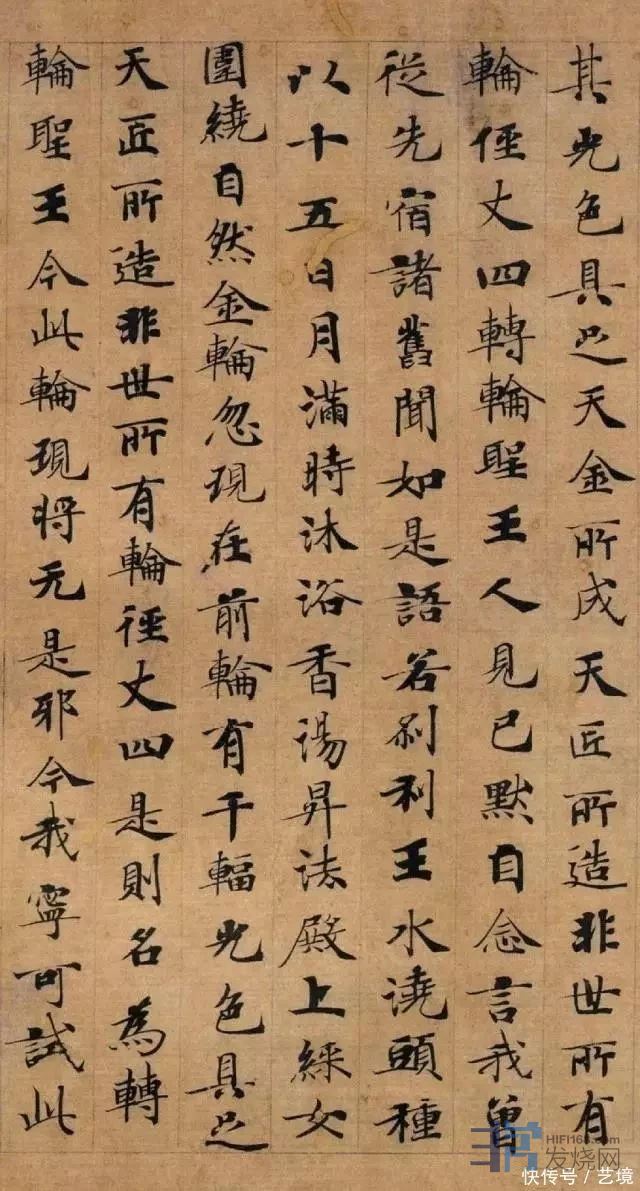 其光色具足天金所成天匠所造非世所有
輪侄丈四轉輪聖王人見已默自念言我曾
從先宿諸舊聞如是語若剎利王水澆頭種
以十五日月滿時沐浴香湯昇法殿上綵女
圍繞自然金輪忽現在前輪有千輻光色具足
天匠所造非世所有輪徑丈四是則名為轉
輪聖王今此輪現將无是邪今我寧可試此
HIFI168.com
发烧网
快传号／艺境